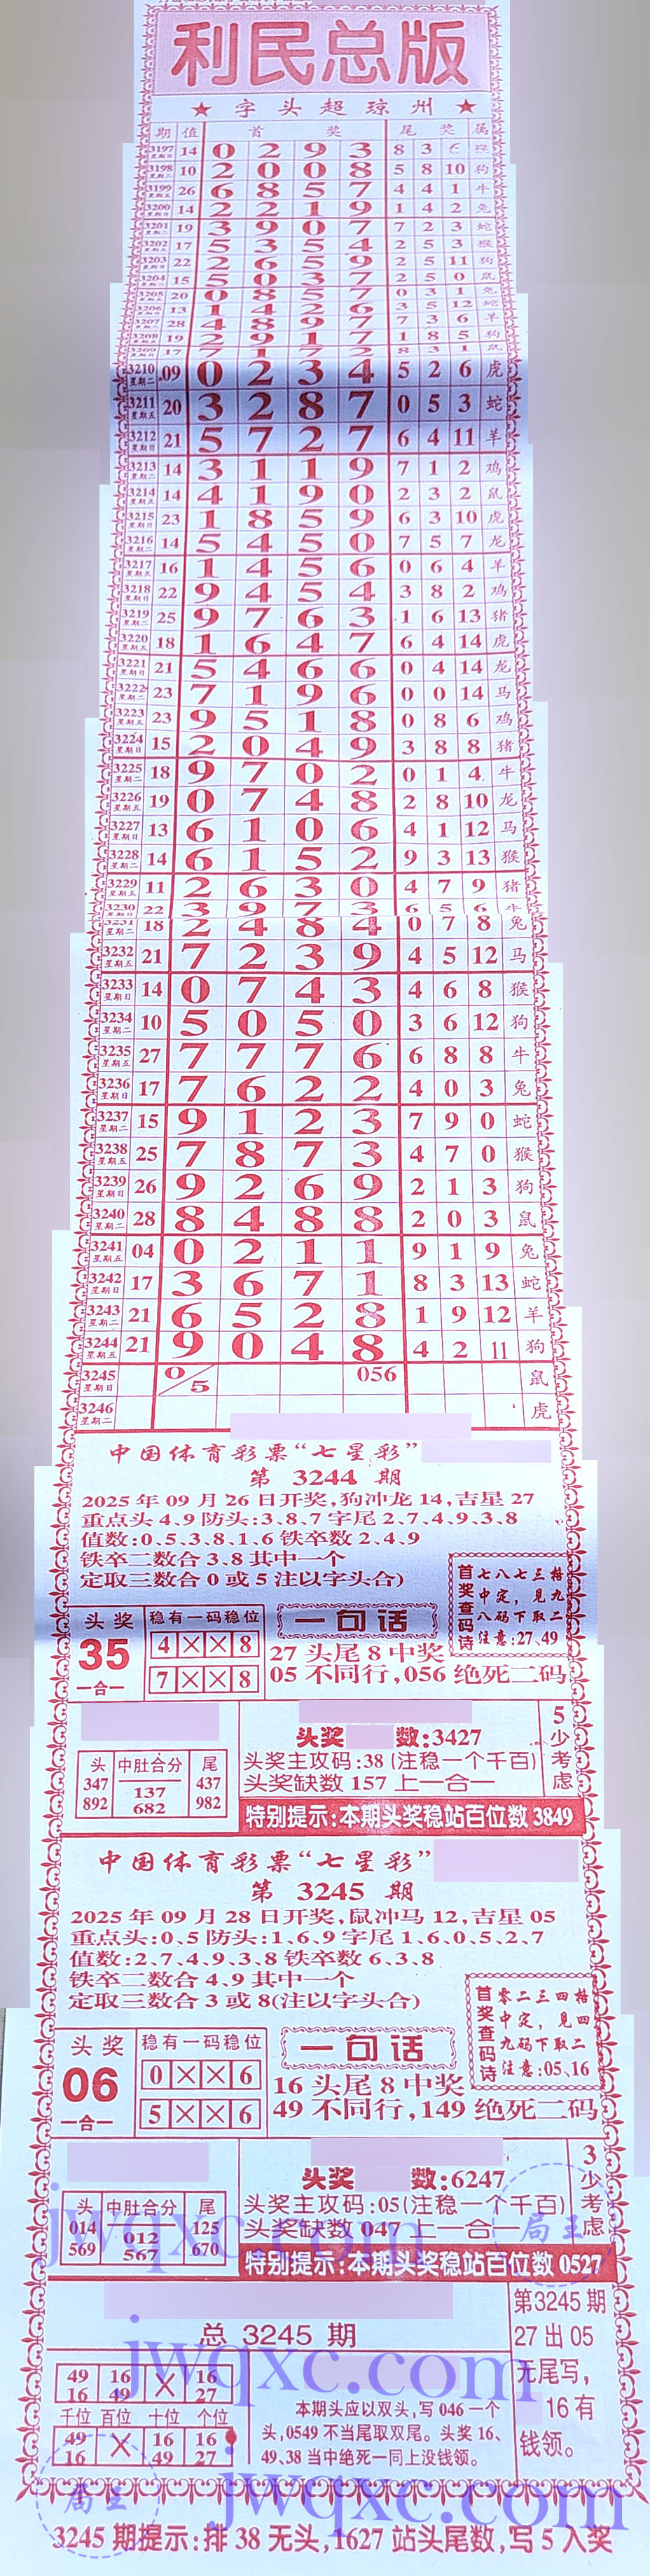 利民总版
★ 字头超琼州 ★
期 值 首奖 尾奖 属
3197 星期日 14 0 2 9 3 8 3 6
3198 星期二 10 2 0 0 8 5 8 10 狗
3199 星期五 26 6 8 5 7 4 4 1 牛
3200 星期日 14 2 2 1 9 1 4 2 兔
3201 星期二 19 3 9 0 7 7 2 3 蛇
3202 星期五 17 5 3 5 4 2 5 3 猴
3203 星期日 22 2 6 5 9 2 5 11 狗
3204 星期二 15 5 0 3 7 2 5 0 鼠
3205 星期五 20 0 8 5 7 0 3 1 兔
3206 星期日 13 1 4 2 6 3 5 12 蛇
3207 星期二 28 4 8 9 7 7 3 6 羊
3208 星期五 19 2 9 1 7 1 8 5 狗
3209 星期日 17 7 1 7 2 8 3 1 鼠
3210 星期二 09 0 2 3 4 5 2 6 虎
3211 星期五 20 3 2 8 7 0 5 3 蛇
3212 星期日 21 5 7 2 7 6 4 11 羊
3213 星期二 14 3 1 1 9 7 1 2 鸡
3214 星期五 14 4 1 9 0 2 3 2 鼠
3215 星期日 23 1 8 5 9 6 3 10 虎
3216 星期二 14 5 4 5 0 7 5 7 龙
3217 星期五 16 1 4 5 6 0 6 4 羊
3218 星期日 22 9 4 5 4 3 8 2 鸡
3219 星期二 25 9 7 6 3 1 6 13 猪
3220 星期五 18 1 6 4 7 6 4 14 虎
3221 星期日 21 5 4 6 6 0 4 14 龙
3222 星期二 23 7 1 9 6 0 0 14 马
3223 星期五 23 9 5 1 8 0 8 6 鸡
3224 星期日 15 2 0 4 9 3 8 8 猪
3225 星期二 18 9 7 0 2 0 1 4 牛
3226 星期五 19 0 7 4 8 2 8 10 龙
3227 星期日 13 6 1 0 6 4 1 12 马
3228 星期二 14 6 1 5 2 9 3 13 猴
3229 星期五 11 2 6 3 0 4 7 9 猪
3230 星期日 22 3 9 7 3 6 5 6 牛
3231 星期二 18 2 4 8 4 0 7 8 兔
3232 星期五 21 7 2 3 9 4 5 12 马
3233 星期日 14 0 7 4 3 4 6 8 猴
3234 星期二 10 5 0 5 0 3 6 12 狗
3235 星期五 27 7 7 7 6 6 8 8 牛
3236 星期日 17 7 6 2 2 4 0 3 兔
3237 星期二 15 9 1 2 3 7 9 0 蛇
3238 星期五 25 7 8 7 3 4 7 0 猴
3239 星期日 26 9 2 6 9 2 1 3 狗
3240 星期二 28 8 4 8 8 2 0 3 鼠
3241 星期五 04 0 2 1 1 9 1 9 兔
3242 星期日 17 3 6 7 1 8 3 13 蛇
3243 星期二 21 6 5 2 8 1 9 12 羊
3244 星期五 21 9 0 4 8 4 2 11 狗
3245 星期日 0/5 056 鼠
3246 星期二 虎
中国体育彩票“七星彩”
第 3244 期
2025年09月26日开奖,狗冲龙14,吉星27
重点头4、9防头:3、8、7字尾2、7、4、9、3、8
值数:0、5、3、8、1、6铁卒数2、4、9
铁卒二数合3、8其中一个
定取三数合0或5注以字头合)
首奖查码诗
七八七三梧
中定，见九
八码下取二
注意:27、49
头奖
35
一合一
稳有一码稳位
4 × × 8
7 × × 8
一句话
27头尾8中奖
05不同行,056绝死二码
头 中肚合分 尾
347 137 437
892 682 982
头奖 数:3427
头奖主攻码:38(注稳一个千百)
头奖缺数157上一合一
特别提示:本期头奖稳站百位数3849
5少考虑
中国体育彩票“七星彩”
第 3245 期
2025年09月28日开奖,鼠冲马12,吉星05
重点头:0、5防头:1、6、9字尾1、6、0、5、2、7
值数:2、7、4、9、3、8铁卒数6、3、8
铁卒二数合4、9其中一个
定取三数合3或8(注以字头合)
首奖查码诗
零二三四梧
中定，见四
九码下取二
注意:05、16
头奖
06
一合一
稳有一码稳位
0 × × 6
5 × × 6
一句话
16头尾8中奖
49不同行,149绝死二码
头 中肚合分 尾
014 012 125
569 567 670
头奖 数:6247
头奖主攻码:05(注稳一个千百)
头奖缺数047上一合一
特别提示:本期头奖稳站百位数0527
3少考虑
总3245期
49 16 × 16
16 49 27
千位 百位 十位 个位
49 × 16 16
16 49 27
本期头应以双头,写046一个
头,0549不当尾取双尾。头奖16、
49、38当中绝死一同上没钱领。
第3245期
27出05
无尾写，
16有
钱领。
3245期提示:排38无头,1627站头尾数,写5入奖
jwqxc.com
局王
jwqxc.com
局王
jwqxc.com